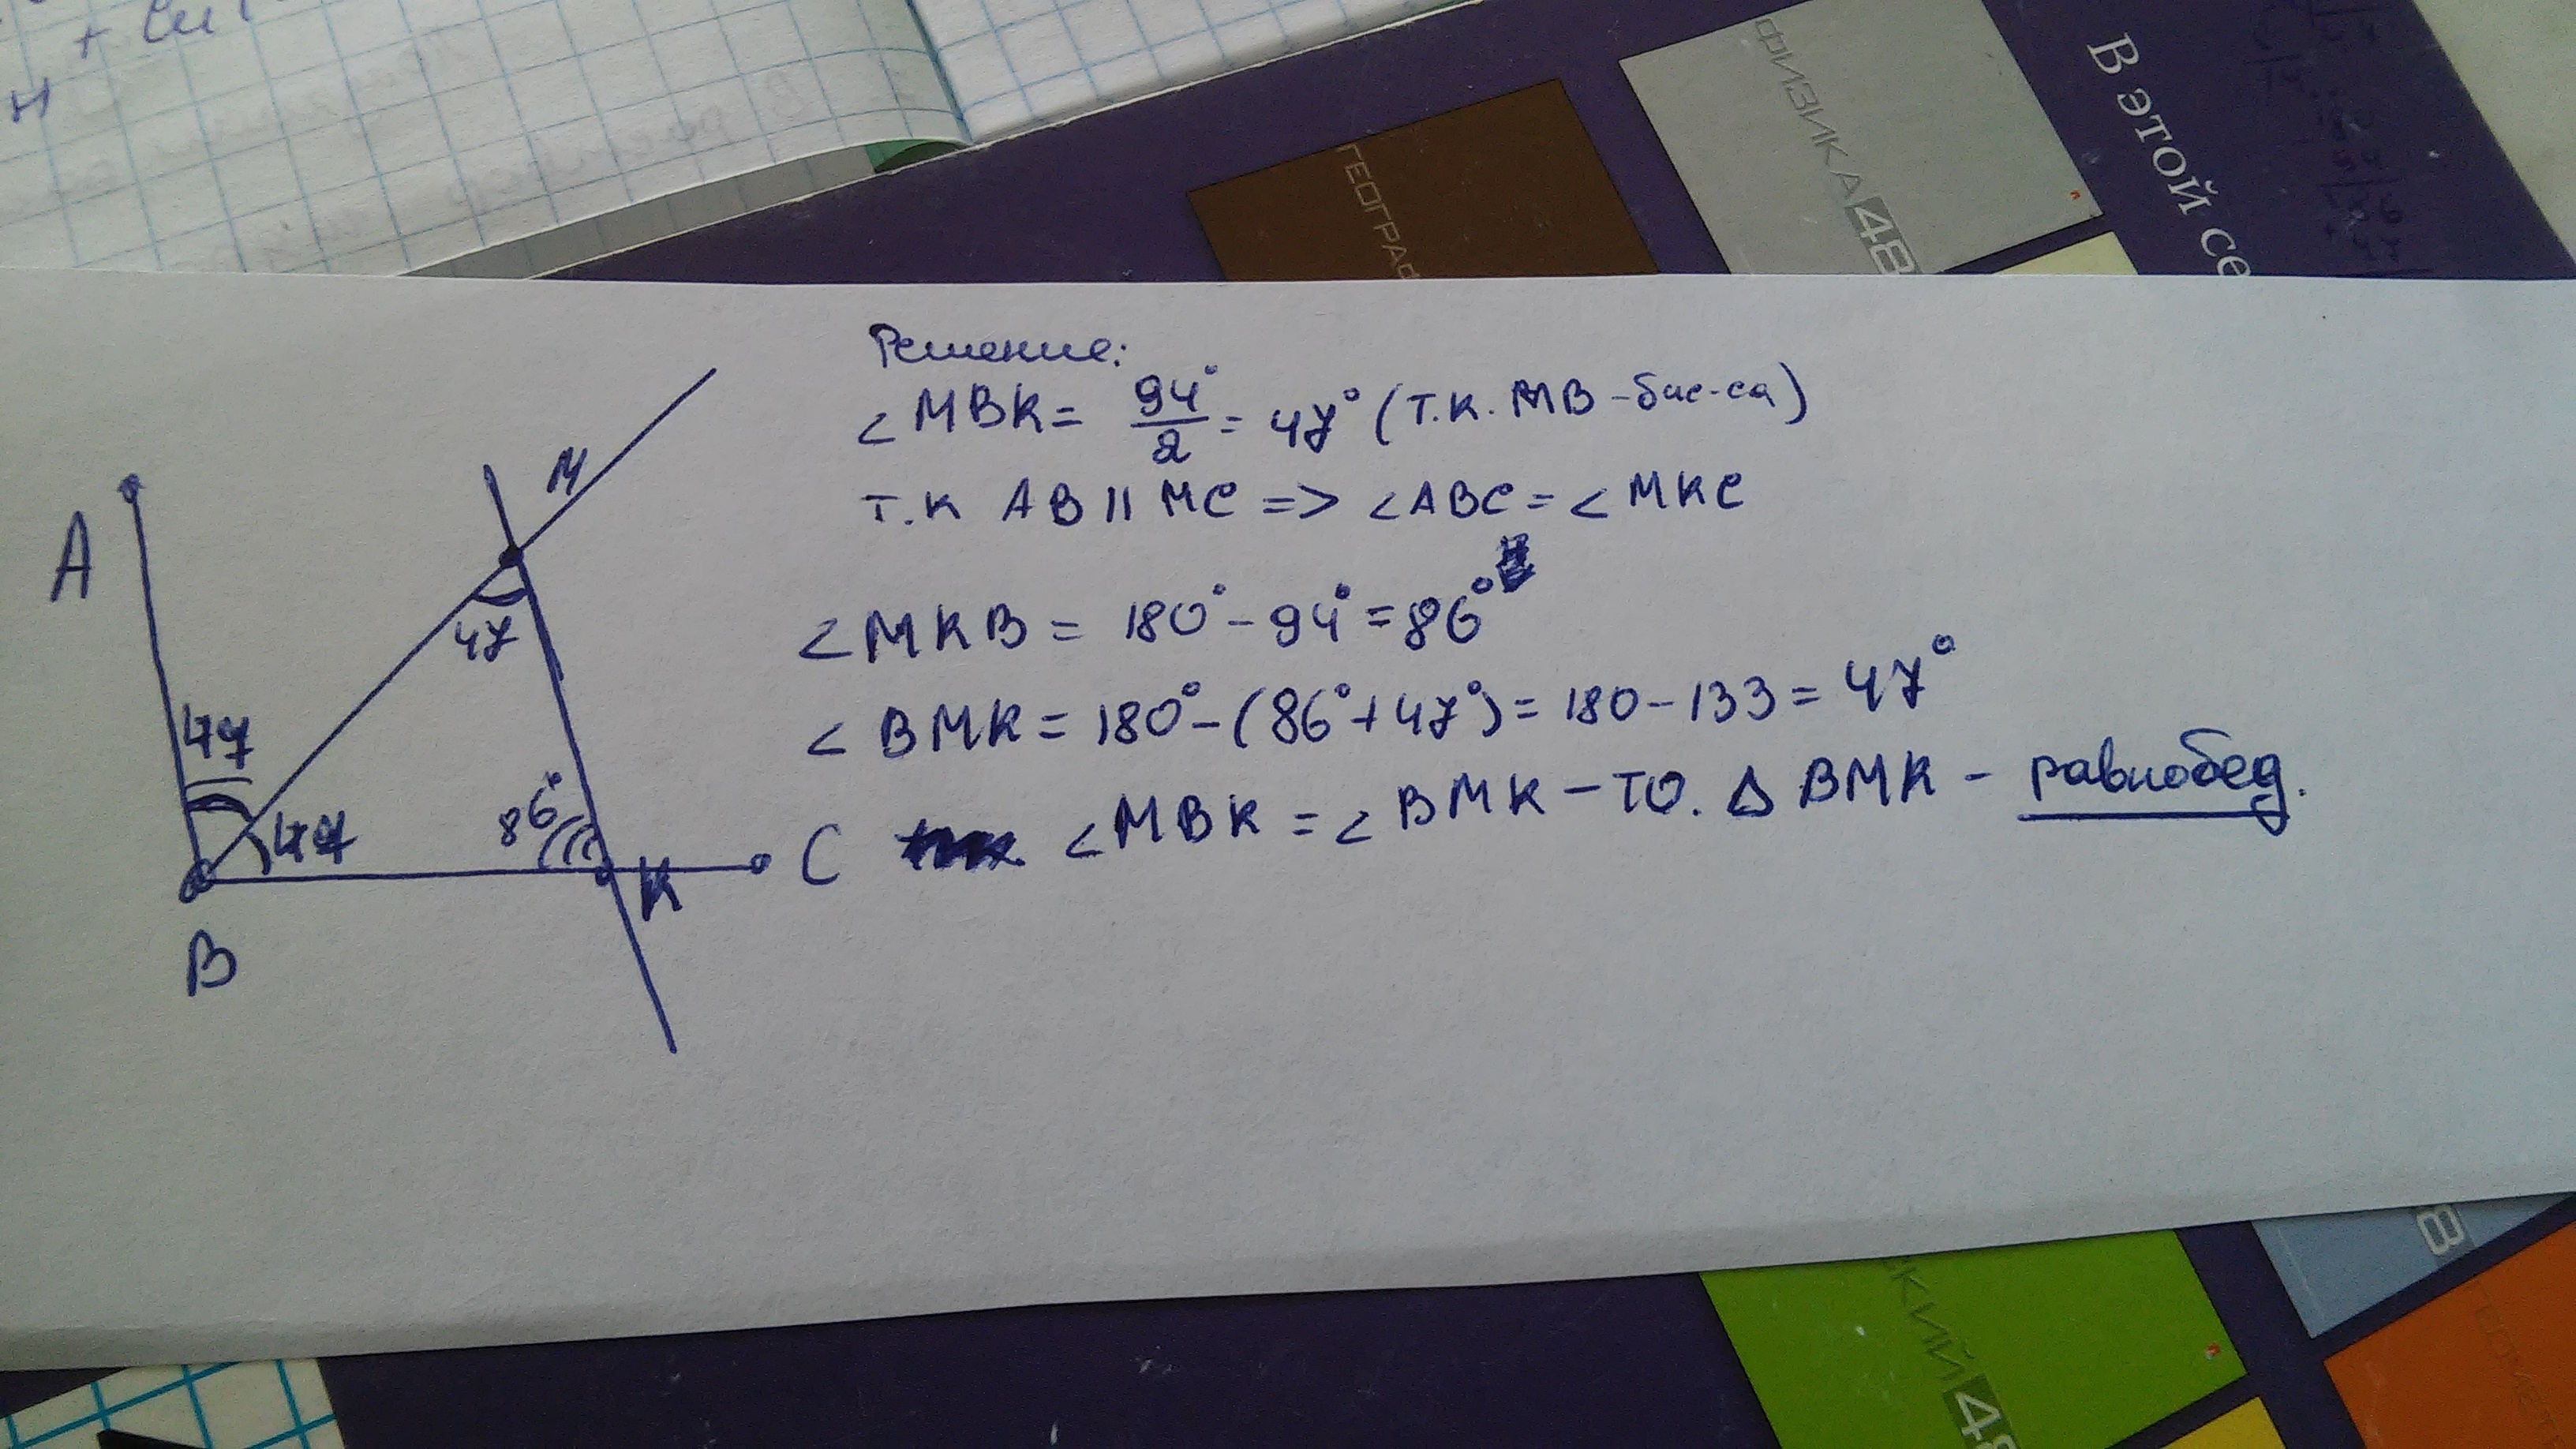 +
н
ГЕОГРАФ
ФИЗИКА 48
В этой се
Решение:
∠MBK = 94°/2 = 47° (т.к. MB - бис-са)
т.к AB || MC => ∠ABC = ∠MKC
∠MKB = 180° - 94° = 86°
∠BMK = 180° - (86° + 47°) = 180 - 133 = 47°
∠MBK = ∠BMK - то. Δ BMK - равнобед.
A
M
47
47
47
86°
B
K
C
СКИЙ 48
8
ГЕОМЕТ